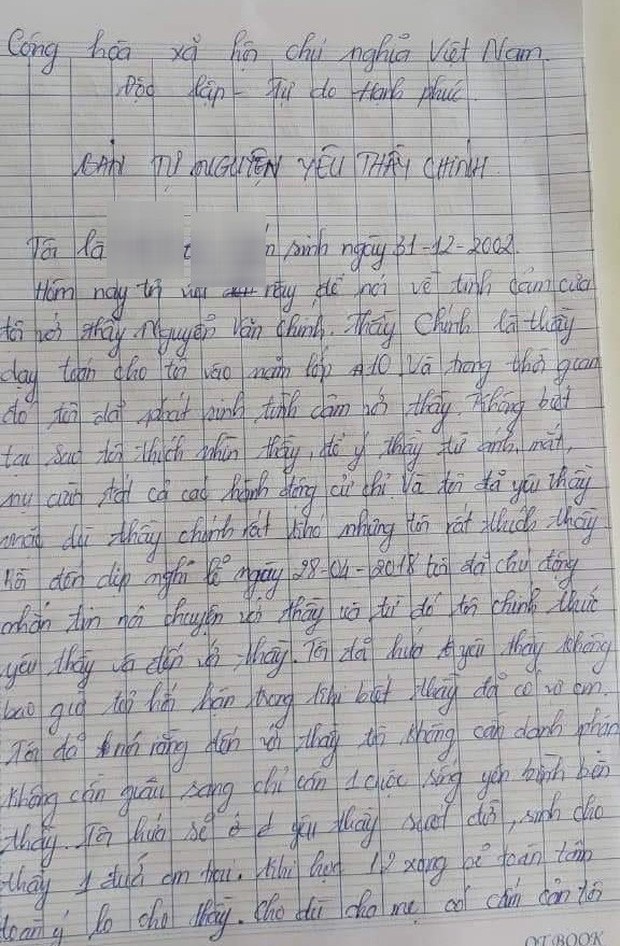 Cộng hòa xã hội chủ nghĩa Việt Nam.
Độc lập - Tự do Hạnh phúc.
BẢN TỰ NGUYỆN YÊU THẦY CHÍNH
Tôi là sinh ngày 31-12-2002.
Hôm nay tôi này để nói về tình cảm của
tôi với thầy Nguyễn Văn Chính. Thầy Chính là thầy
dạy toán cho tôi vào năm lớp 10. Và trong thời gian
đó tôi đã phát sinh tình cảm với thầy. Không biết
tại sao tôi thích nhìn thầy, để ý thầy từ ánh mắt,
nụ cười tất cả các hành động cử chỉ. Và tôi đã yêu thầy
mặc dù thầy chính rất khó nhưng tôi rất thích thầy.
đến dịp nghỉ lễ ngày 28-04-2018 tôi đã chủ động
nhắn tin nói chuyện với thầy và từ đó tôi chính thức
yêu thầy và đến với thầy. Tôi đã hứa yêu thầy không
bao giờ hối hận trong khi biết thầy đã có vợ con.
Tôi đã rằng đến với thầy tôi không cần danh phận
không cần giàu sang chỉ cần 1 cuộc sống yên bình bên
thầy. Tôi hứa sẽ ở yêu thầy suốt đời, sinh cho
thầy 1 đứa con trai. Khi học 12 xong sẽ toàn tâm
toàn ý lo cho thầy. Cho dù cha mẹ có cấm cản tôi
OT.BOOK